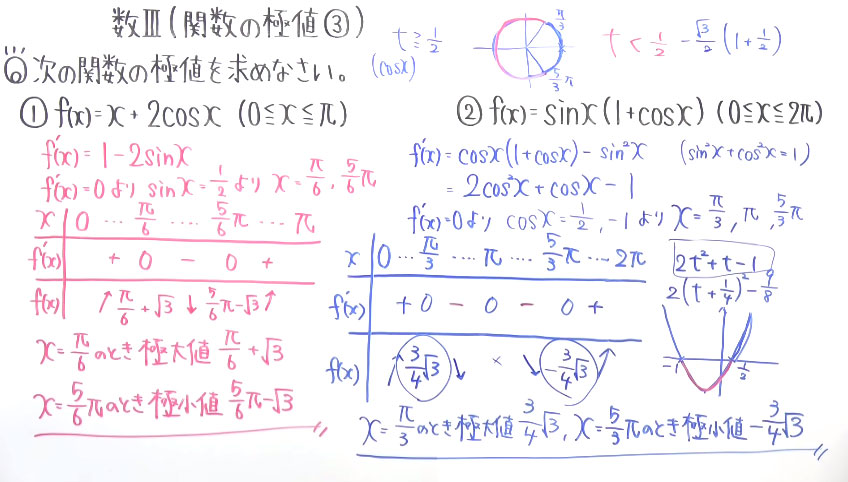 数Ⅲ(関数の極値③)
t≧1/2
(cosx)
π/3
5/3π
t<1/2 -√3/2(1+1/2)
⑥次の関数の極値を求めなさい。
①f(x)=x+2cosx (0≦x≦π)
f'(x)=1-2sinx
f'(x)=0より sinx=1/2より x=π/6, 5/6π
x 0 … π/6 …. 5/6π … π
f'(x) + 0 - 0 +
f(x) ↗ π/6+√3 ↓ 5/6π-√3 ↗
x=π/6のとき極大値 π/6+√3
x=5/6πのとき極小値 5/6π-√3
②f(x)=sinx(1+cosx) (0≦x≦2π)
f'(x)=cosx(1+cosx)-sin²x (sin²x+cos²x=1)
=2cos²x+cosx-1
f'(x)=0より cosx=1/2, -1より x=π/3, π, 5/3π
x 0 … π/3 …. π …. 5/3π … 2π
f'(x) + 0 - 0 - 0 +
f(x) ↗ 3/4√3 ↘ × ↘ -3/4√3 ↗
2t²+t-1
2(t+1/4)²-9/8
-1 1/2
x=π/3のとき極大値 3/4√3, x=5/3πのとき極小値 -3/4√3